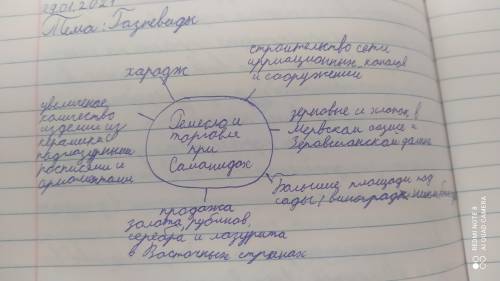 29.01.2021
Тема: Газневиды
харадж
строительство сети
ирригационных каналов
и сооружений
увеличение
количество
изделие из
керамики с
подглазурными
росписями и
орнаментами
Ремесло и
торговля
при
Саманидах
зерновые и хлопок в
Мервском оазисе и
Зеравшанской долине
Большие площади под
сады, виноградники
продажа
золота, рубинов,
серебра и лазурита
в Восточных странах
REDMI NOTE 9
AI QUAD CAMERA